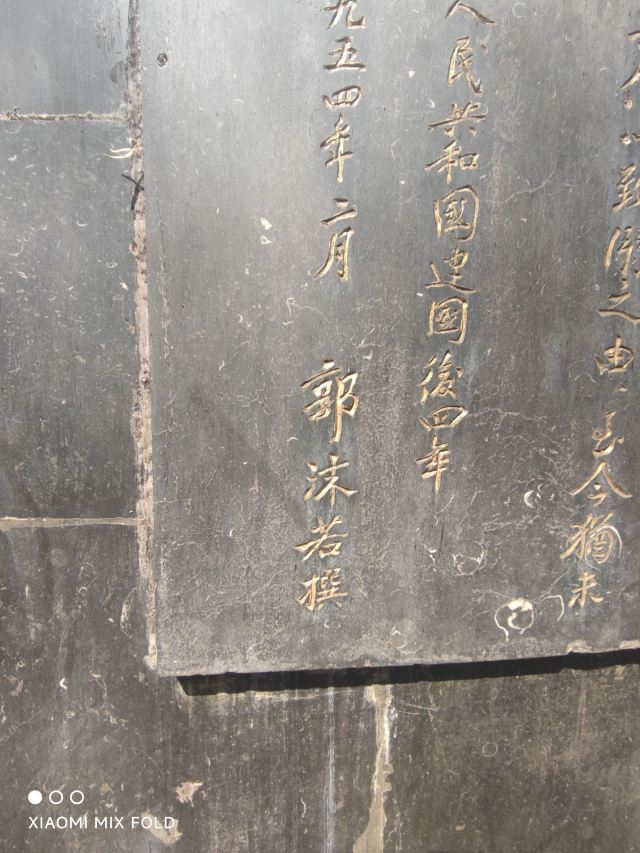 以致溺之由、至今猶未
人民共和國建國後四年
九五四年二月 郭沫若撰
XIAOMI MIX FOLD